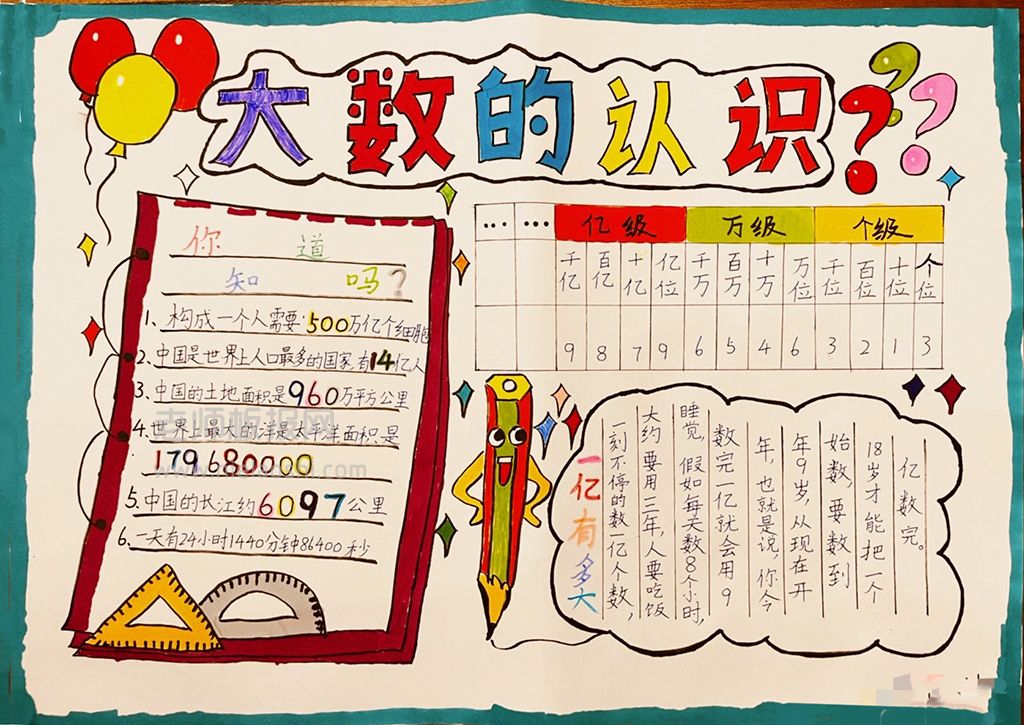 大数的认识??
你知道吗?
1、构成一个人需要500万亿个细胞
2、中国是世界上人口最多的国家,有14亿人
3、中国的土地面积是960万平方公里
4、世界上最大的洋是太平洋面积是
179680000
5、中国的长江约6097公里
6、一天有24小时1440分钟86400秒
老师板报网
… … 亿级 万级 个级
千亿 百亿 十亿 亿位 千万 百万 十万 万位 千位 百位 十位 个位
9 8 7 9 6 5 4 6 3 2 1 3
一亿有多大
一刻不停的数一亿个数,
大约要用三年,人要吃饭
睡觉,假如每天数8个小时,
数完一亿就会用9
年,也就是说,你今
年9岁,从现在开
始数,要数到
18岁才能把一个
亿数完。